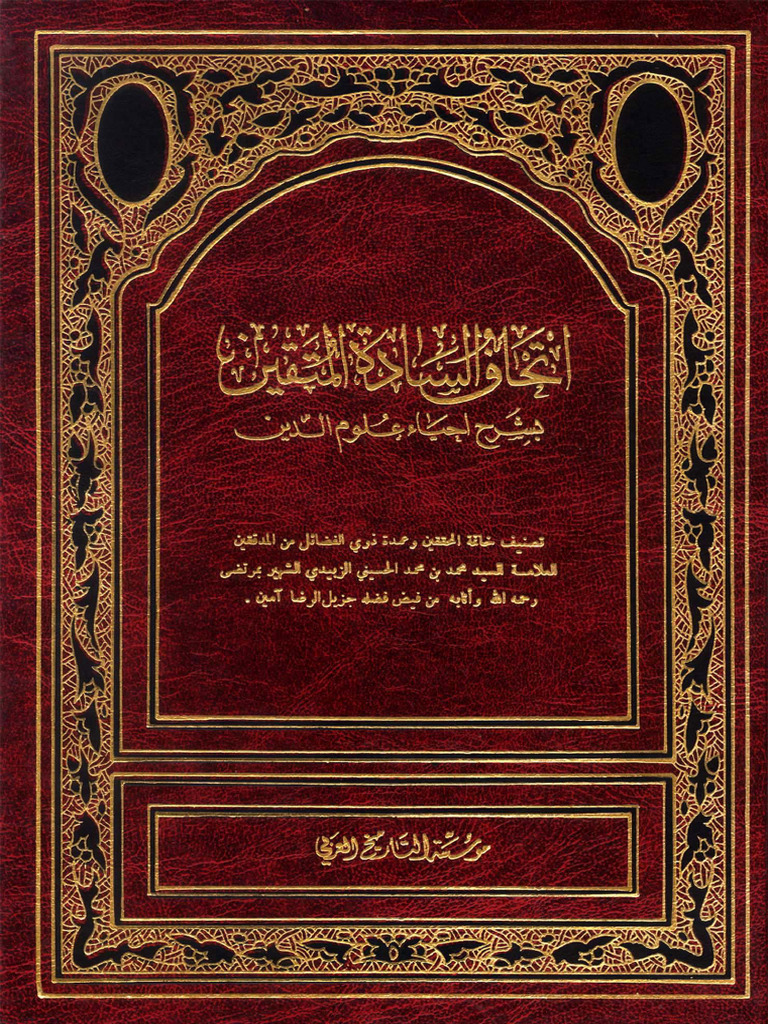 اتحاف السادة المتقين
بشرح احياء علوم الدين
تصنيف خاتمة المحققين وعمدة ذوي الفضائل من المدققين
العلامة السيد محمد بن محمد الحسيني الزبيدي الشهير بمرتضى
رحمه الله وأثابه من فيض فضله جزيل الرضا آمين .
مؤسسة التاريخ العربي